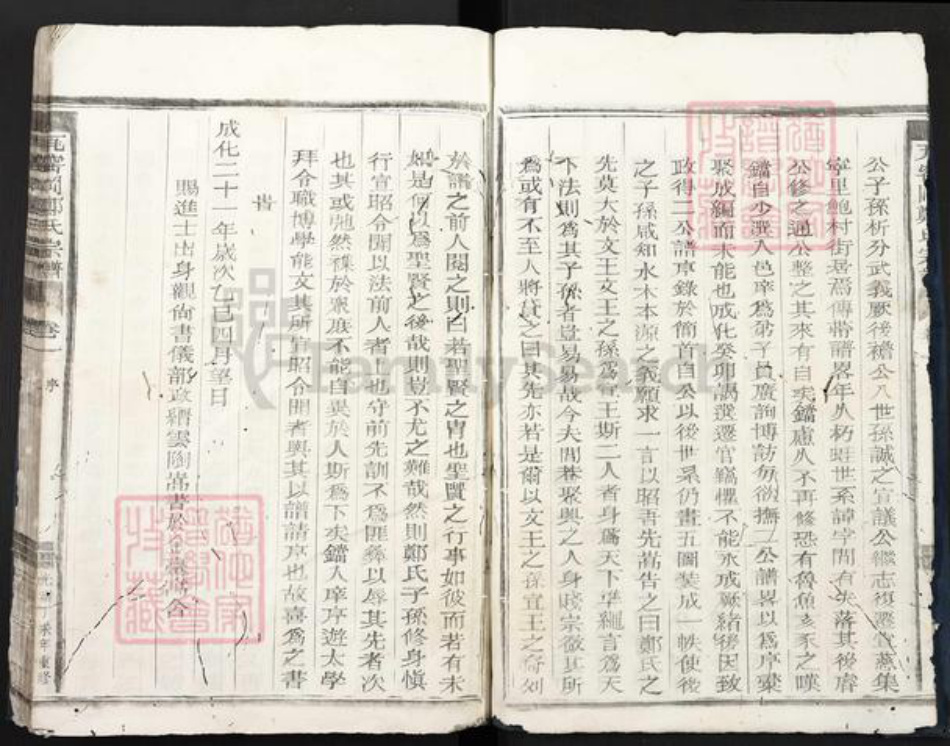 公子孫析分武義厥後襜公八世孫誠之宣議公繼志復讌堂燕集
寧里鮑村街居焉傳帶譜畧年久朽蛀世系諱字間有失落其後
公修之通公整之其來有自矣鐺慮久不再修恐有魯魚亥豕之嘆
鐺自少選入邑庠為弟子員廣詢博訪每欲撫二公譜畧以為序彙
聚成編而未能也成化癸卯謁選遷官竊懼不能永成厥緒後因致
政得二公譜序錄於簡首自公以後世系仍畫五圖裝成一帙使後
之子孫咸知水木本源之義願求一言以昭吾先嵩告之曰鄭氏之
先莫大於文王文王之孫為宣王斯二人者身為天下準繩言為天
下法則為其子孫者豈易易哉今夫閭巷聚興之人身賤宗微其所
為或有不至人將貰之曰其先亦若是爾以文王之孫宣王之裔列
於譜之前人閱之則曰若聖賢之冑也聖賢之行事如彼而若有未
是何以為聖賢之後哉則豈不尤之難哉然則鄭氏子孫修身慎
行宣昭令聞以法前人者上也守前先訓不為匪彝以辱其先者次
也其或弛然襍於衆庶不能自異於人斯為下矣鐺入庠序遊太學
拜令職博學能文其所宣昭令聞者與其以譜請序也故喜為之書
旹
成化二十一年歲次乙巳四月望日
賜進士出身觀尚書儀部政縉雲陶嵩書於金
鄭氏宗譜
卷一
序
光緒丁未年重修